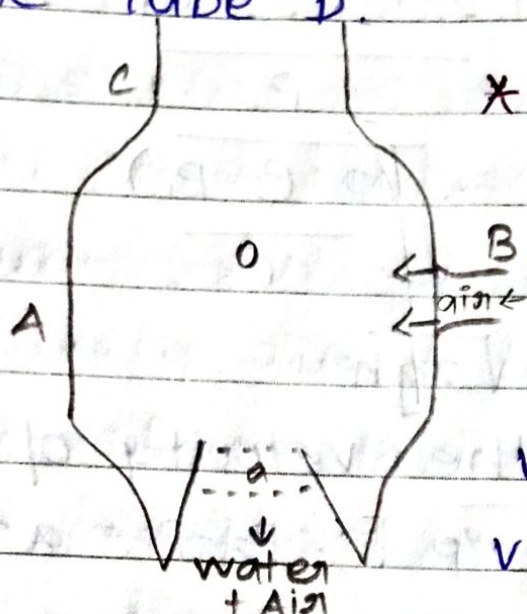 Tube D.
C
*
O
B
air
A
a
V
water
+ Air